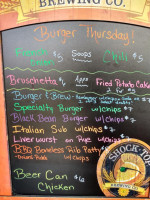 BREWING CO.
Burger Thursday!
French Onion $5 Soups Chili $5
Bruschetta $7 Apps Fried Potato Cake
Burger & Brew
Specialty Burger w/chips $7
Black Bean Burger w/chips $7
Italian Sub w/chips $7
Liverwurst on Rye w/chips $7
BBQ Boneless Rib Patty
w/chips
Beer Can $12
Chicken
SHOCK TOP